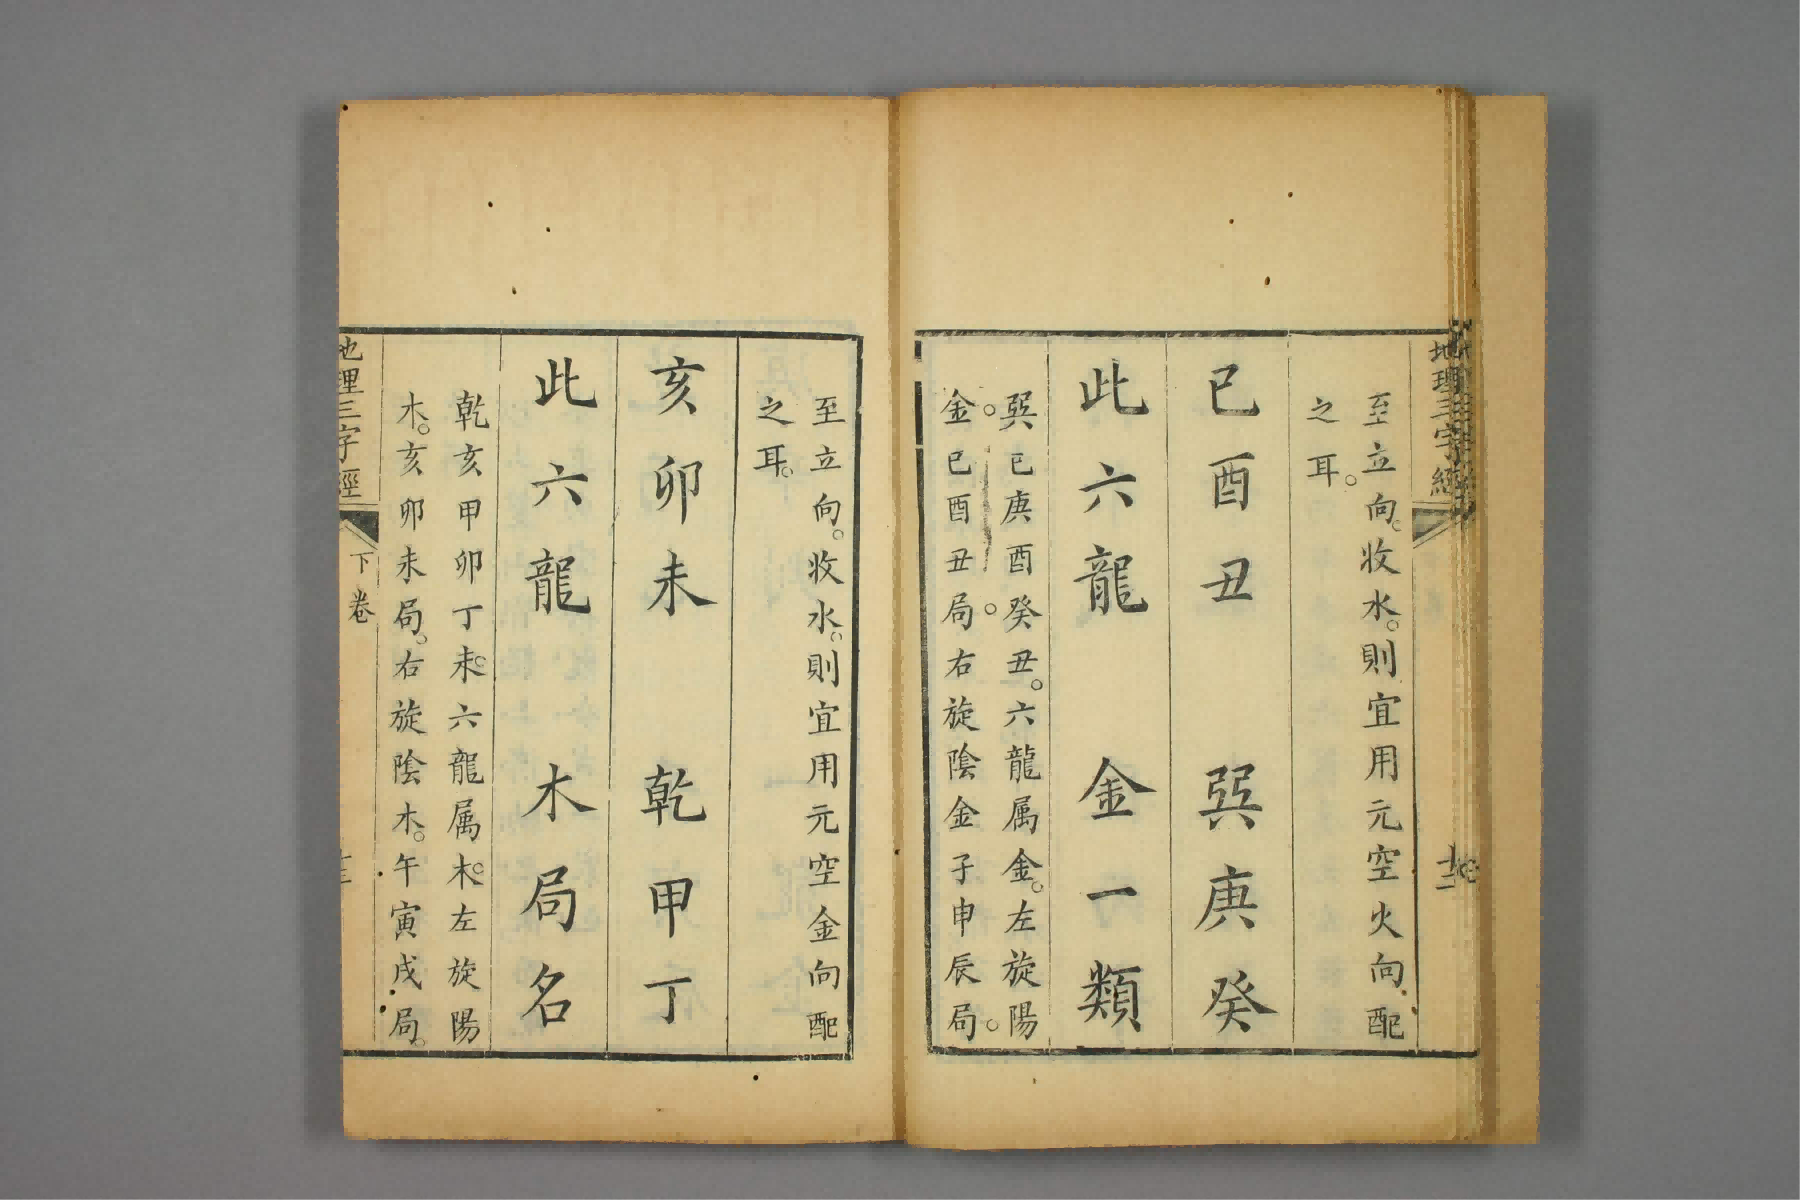 地理三字經
十二
至立向。收水。則宜用元空火向配
之耳。
巳酉丑　巽庚癸
此六龍　金一類
巽巳庚酉癸丑。六龍属金。左旋陽
金。巳酉丑局。右旋陰金子申辰局。
至立向。收水。則宜用元空金向配
之耳。
亥卯未　乾甲丁
此六龍　木局名
乾亥甲卯丁未。六龍属木。左旋陽
木。亥卯未局。右旋陰木。午寅戌局。
地理三字經
下卷
十三